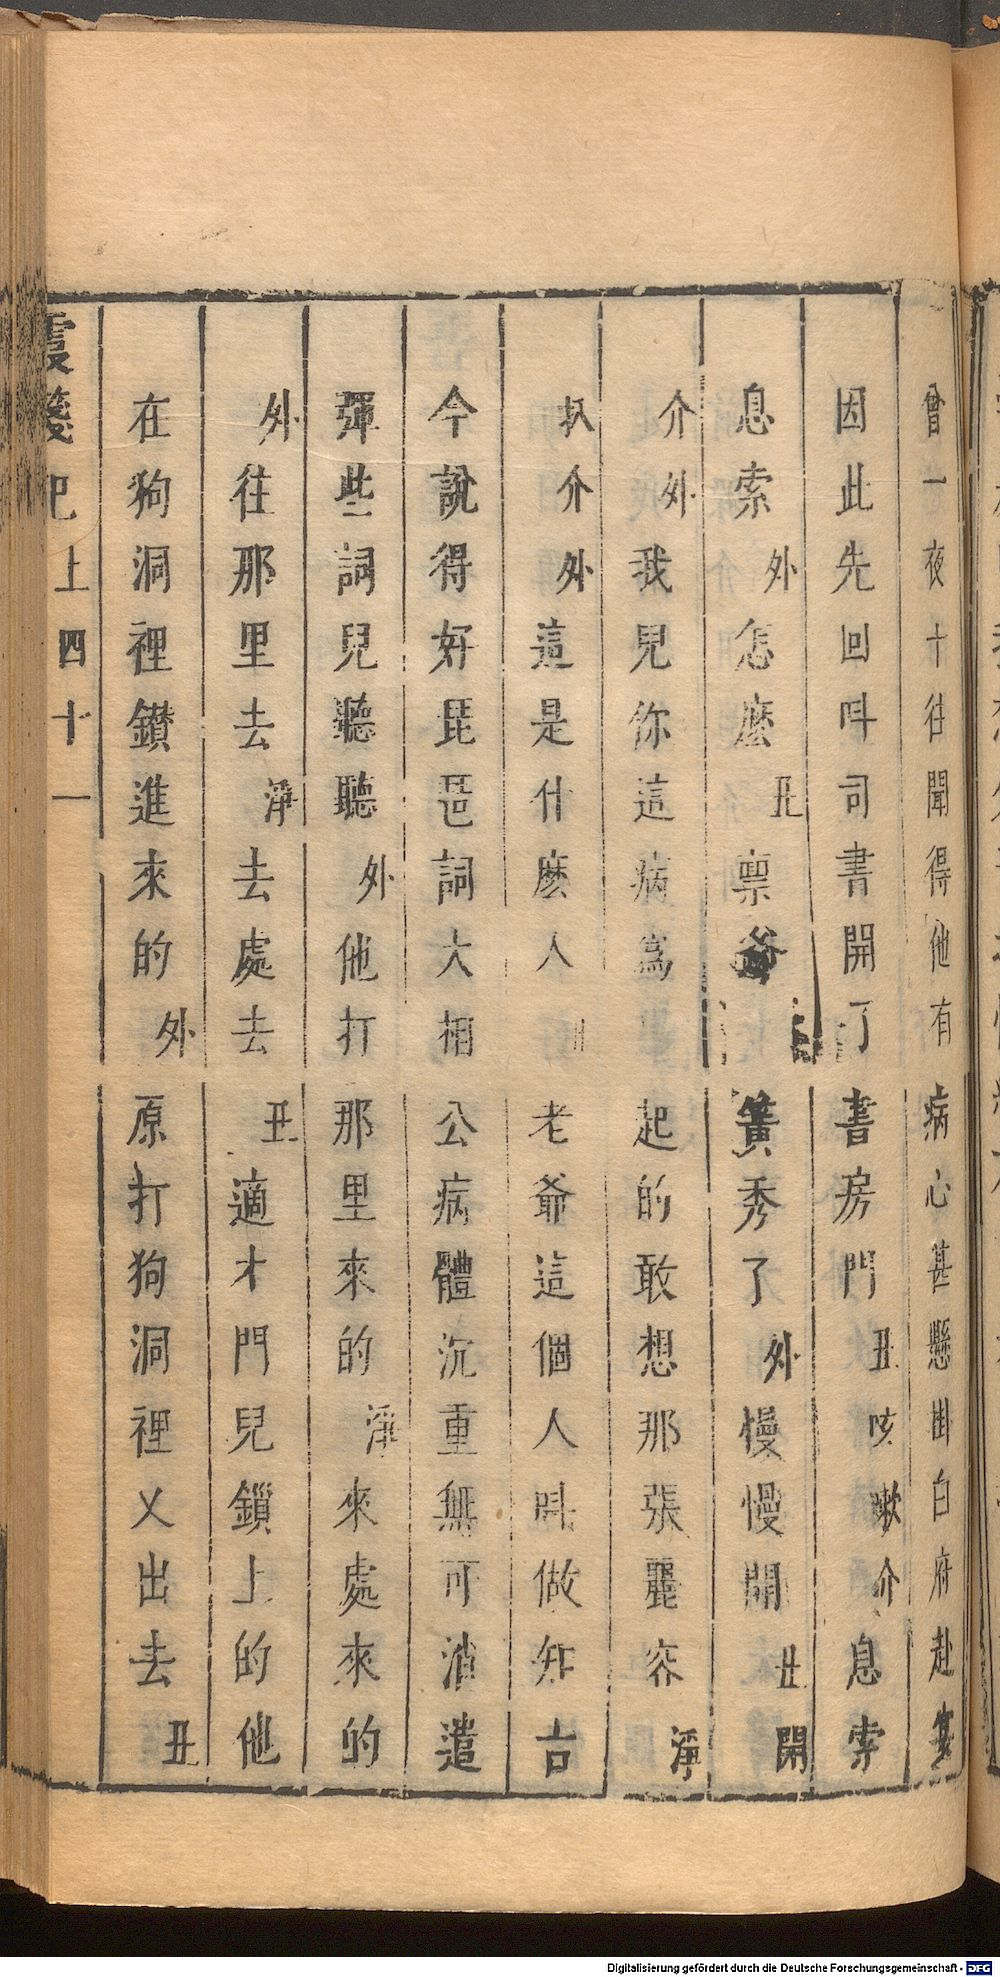 曾一夜十往聞得他有病心甚懸掛白府赴宴
因此先回呌司書開了書房門丑咳嗽介息索
息索外怎麽丑禀爺簧秀了外慢慢開丑開
介外我兒你這病爲起的敢想那張麗容淨
扒介外這是什麽人老爺這個人呌做知古
今說得好琵琶詞大相公病體沉重無可消遣
彈些詞兒聽聽外他打那里來的淨來處來的
外往那里去淨去處去丑適才門兒鎖上的他
在狗洞裡鑚進來的外原打狗洞裡乂出去丑
霞箋記上四十一
Digitalisierung gefördert durch die Deutsche Forschungsgemeinschaft - DFG